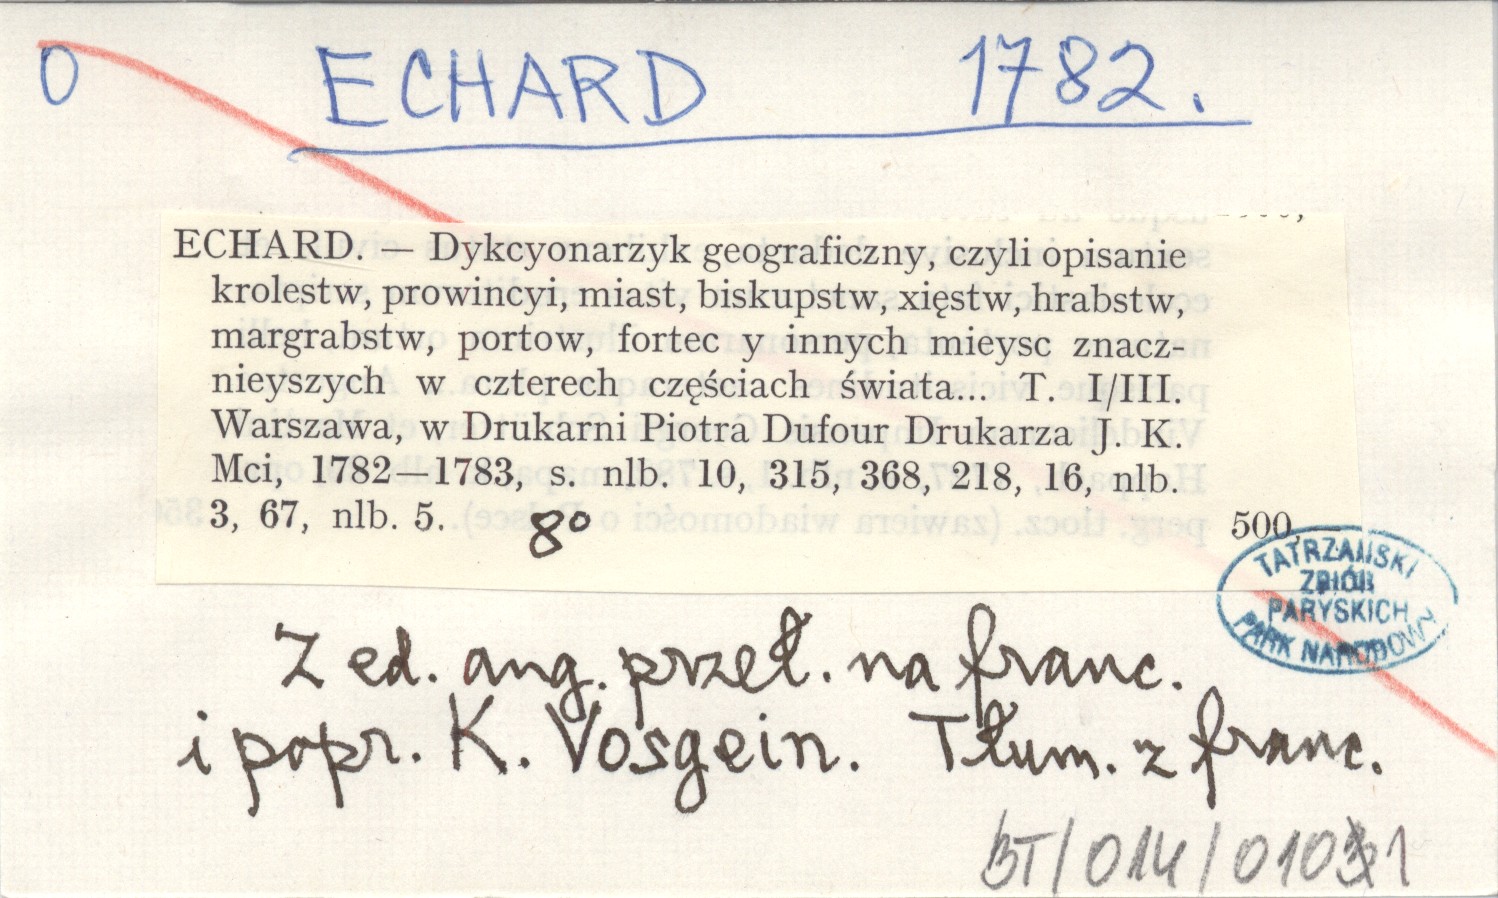 0 ECHARD 1782.
ECHARD. — Dykcyonarzyk geograficzny, czyli opisanie
krolestw, prowincyi, miast, biskupstw, xięstw, hrabstw,
margrabstw, portow, fortec y innych mieysc znacz-
nieyszych w czterech częściach świata... T. I/III
Warszawa, w Drukarni Piotra Dufour Drukarza J. K.
Mci, 1782—1783, s. nlb. 10, 315, 368, 218, 16, nlb.
3, 67, nlb. 5. 8° 500,—
TATRZAŃSKI
ZBIÓR
PARYSKICH
PARK NARODOWY
Z ed. ang. przeł. na franc.
i popr. K. Vosgein. Tłum. z franc.
BT/014/01031